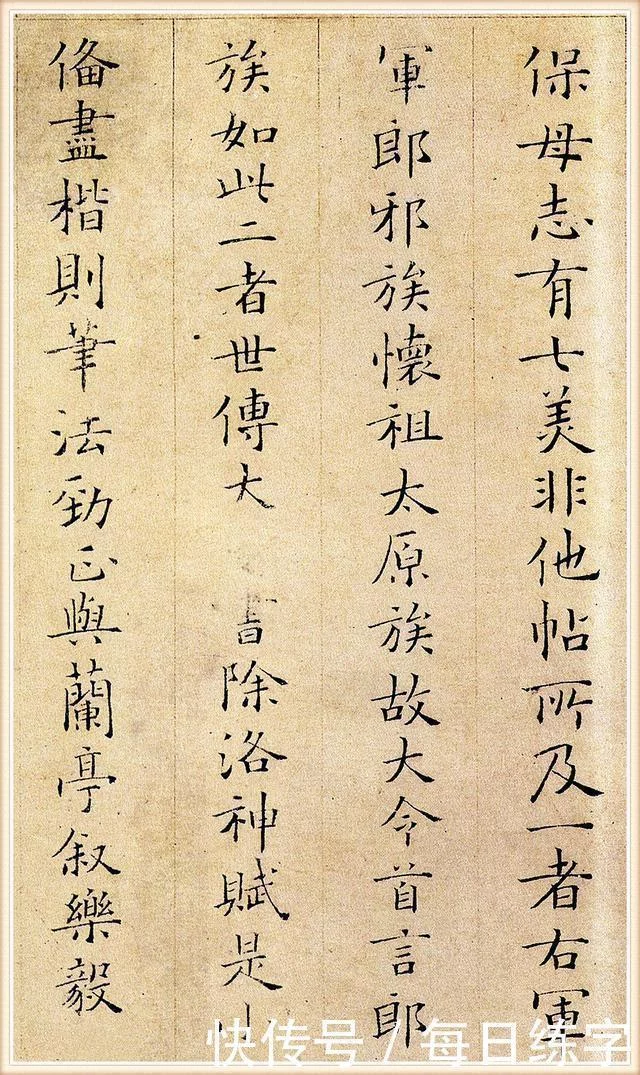 保母志有七美非他帖所及一者右軍
軍郎邪族懷祖太原族故大令首言郎
族如此二者世傳大書除洛神賦是小
俻盡楷則筆法勁正與蘭亭叙樂毅
快传号 / 每日练字